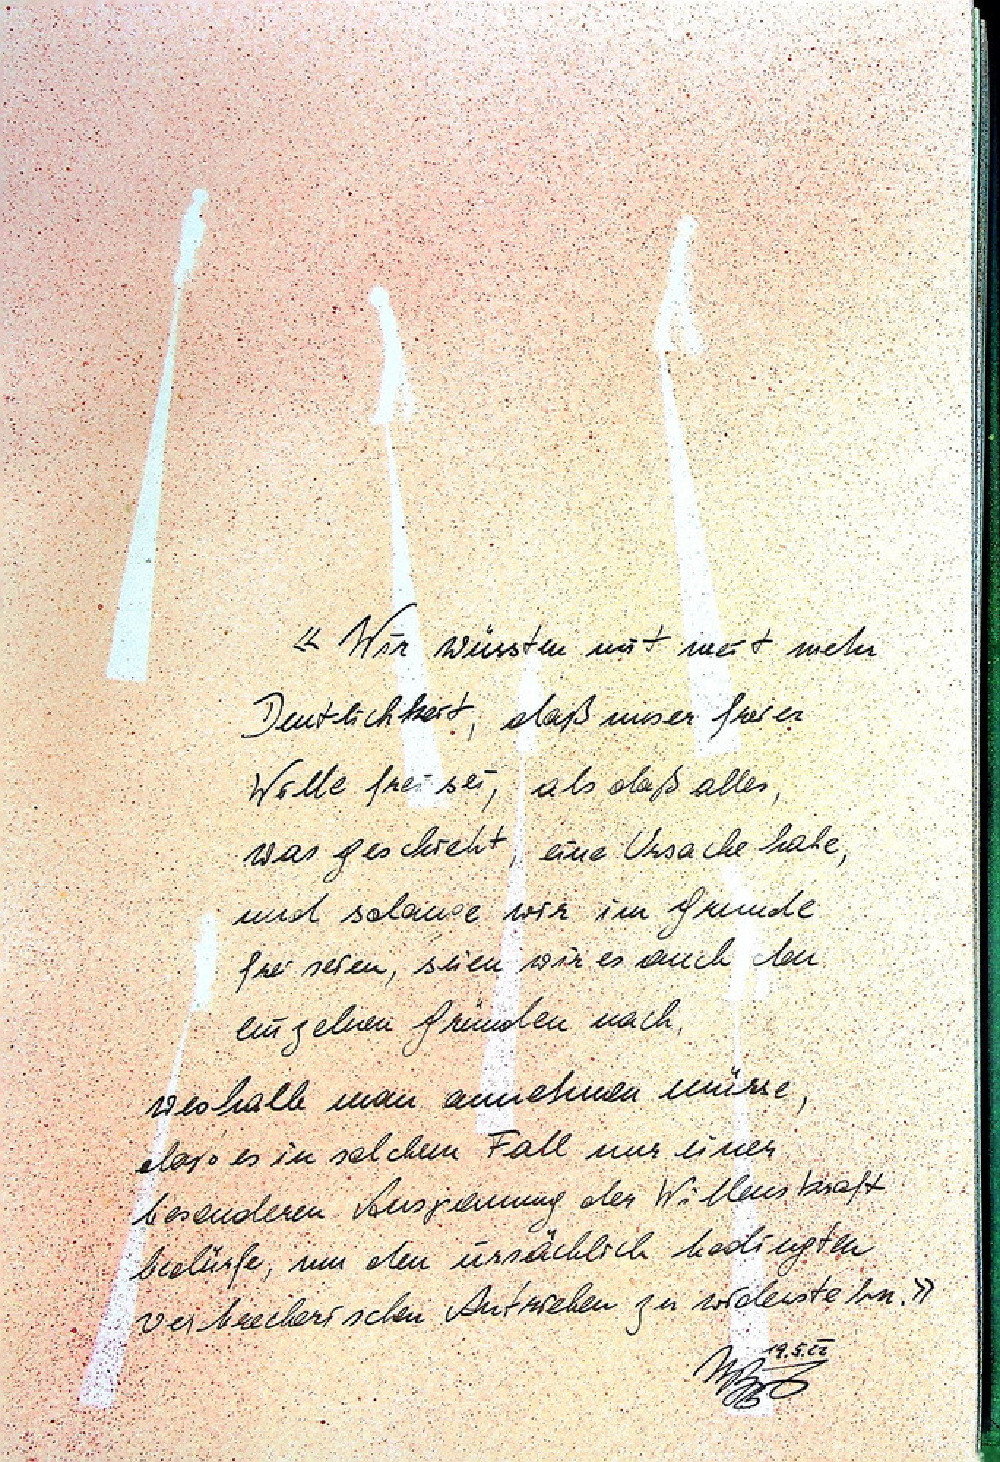 « Wir wüssten mit weit mehr
Deutlichkeit, daß unser freier
Wille frei sei, als daß alles,
was geschieht, eine Ursache habe,
und solange wir im Grunde
frei seien, seien wir es auch den
einzelnen Gründen nach,
weshalb man annehmen müsse,
daß es in solchem Fall nur einer
besonderen Anspannung der Willenskraft
bedürfe, um den ursächlich bedingten
verbrecherischen Antrieben zu widerstehn.»
19.5.22